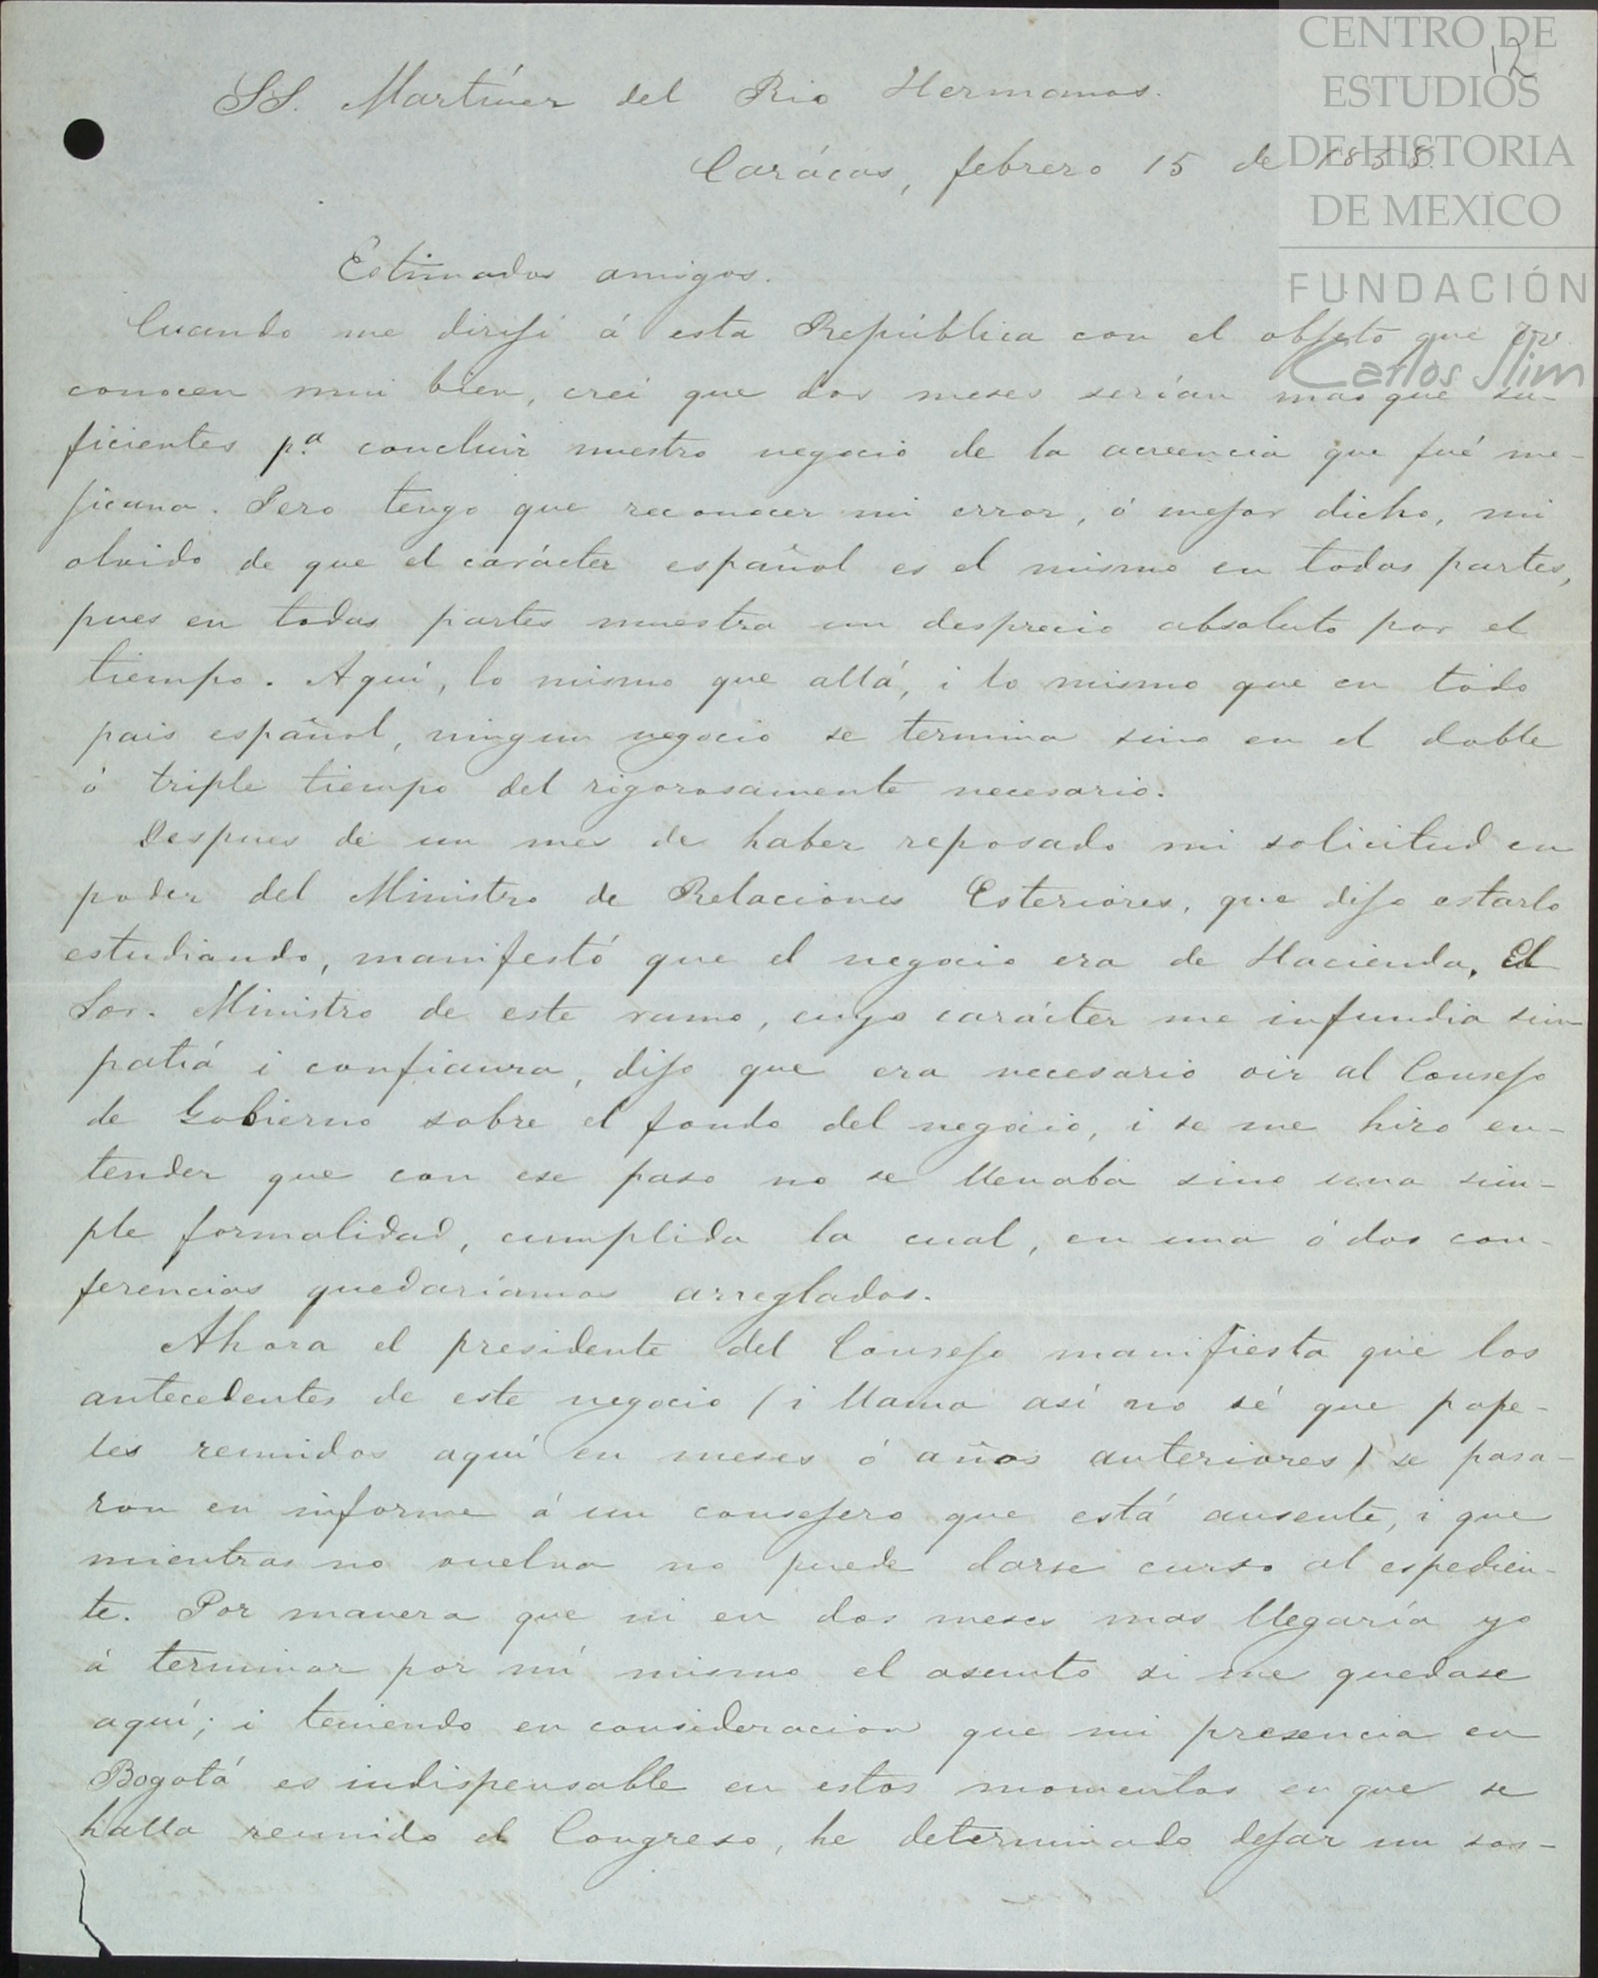 12
SS. Martínez del Rio Hermanos.
Carácas, febrero 15 de 1858.
Estimados amigos.
Cuando me dirijí á esta República con el objeto que UU.
conocen mui bien, creí que dos meses serían mas que su-
ficientes pa. concluir nuestro negocio de la acreencia que fué me-
jicana. Pero tengo que reconocer mi error, ó mejor dicho, mi
olvido de que el carácter español es el mismo en todas partes,
pues en todas partes muestra un desprecio absoluto por el
tiempo. Aquí, lo mismo que allá, i lo mismo que en todo
pais español, ningun negocio se termina sino en el doble
ó triple tiempo del rigorosamente necesario.
Despues de un mes de haber reposado mi solicitud en
poder del Ministro de Relaciones Esteriores, que dijo estarlo
estudiando, manifestó que el negocio era de Hacienda. El
Sor. Ministro de este ramo, cuyo carácter me infundia sim-
patía i confianza, dijo que era necesario oir al Consejo
de Gobierno sobre el fondo del negocio, i se me hizo en-
tender que con ese paso no se llenaba sino una sim-
ple formalidad, cumplida la cual, en una ó dos con-
ferencias quedaríamos arreglados.
Ahora el presidente del Consejo manifiesta que los
antecedentes de este negocio (i llama así no sé que pape-
les reunidos aquí en meses ó años anteriores) se pasa-
ron en informe á un consejero que está ausente, i que
mientras no vuelva no puede darse curso al espedien-
te. Por manera que ni en dos meses mas llegaría yo
á terminar por mí mismo el asunto si me quedase
aquí; i teniendo en consideracion que mi presencia en
Bogotá es indispensable en estos momentos en que se
halla reunido el Congreso, he determinado dejar un sos-
CENTRO DE
ESTUDIOS
DE HISTORIA
DE MEXICO
FUNDACIÓN
Carlos Slim